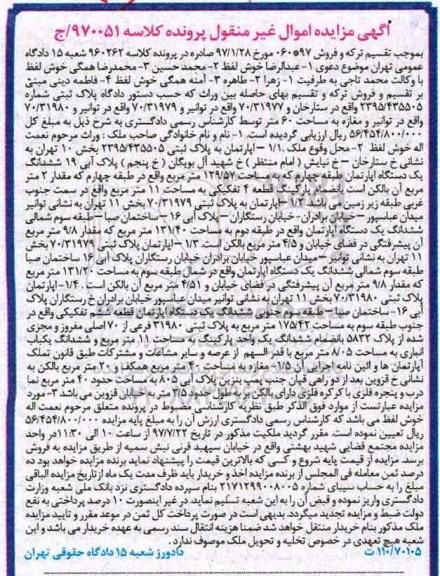 آگهی مزایده اموال غیر منقول پرونده کلاسه ۹۷۰۰۵۱/ج
بموجب تقسیم ترکه و فروش ۹۷*۰۶۰ مورخ ۹۷/۱/۲۸ صادره در پرونده کلاسه ۹۶۰۲۶۲ شعبه ۱۵ دادگاه
عمومی تهران موضوع دعوی ۱- عبدالرضا خوش لفظ ۲- محمد حسین ۳- محمدرضا همگی خوش لفظ
با وکالت محمد تاجی به طرفیت ۱- زهرا ۲- طاهره ۳- آمنه همگی خوش لفظ ۴- فاطمه دینی مبنی
بر تقسیم و فروش ترکه و تقسیم بهای حاصله بین وراث که حسب دستور دادگاه پلاک ثبتی شماره
۲۳۹۵/۴۳۵۵۰۵ واقع در ستارخان و ۷۰/۳۱۹۷۷ واقع در توانیر و ۷۰/۳۱۹۷۹ واقع در توانیر و ۷۰/۳۱۹۸۰
واقع در توانیر و مغازه به مساحت ۶۰ متر توسط کارشناس رسمی دادگستری به شرح ذیل به مبلغ کل
۵۶/۴۵۴/۸۰۰/۰۰۰ ریال ارزیابی گردیده است. ۱- نام و نام خانوادگی صاحب ملک : وراث مرحوم نعمت
اله خوش لفظ ۲- محل وقوع ملک ۱/۱- آپارتمان به پلاک ثبتی ۲۳۹۵/۴۳۵۵۰۵ بخش ۱۰ تهران به
نشانی خ ستارخان – خ نیایش ( امام منتظر ) خ شهید آل بویگان ( خ پنجم ) پلاک آبی ۱۹ ششدانگ
یک دستگاه آپارتمان طبقه چهارم که به مساحت ۱۲۹/۵۷ متر مربع واقع در طبقه چهارم که مقدار ۲ متر
مربع آن بالکن است. بانضمام پارکینگ قطعه ۴ تفکیکی به مساحت ۱۱ متر مربع واقع در سمت جنوب
غربی طبقه زیر زمین ۱/۲- آپارتمان به پلاک ثبتی ۷۰/۳۱۹۷۹ بخش ۱۱ تهران به نشانی توانیر
میدان عباسپور – خیابان برادران- خیابان رستگاران – پلاک آبی ۱۶ – ساختمان صبا – طبقه سوم شمالی
ششدانگ یک دستگاه آپارتمان واقع در طبقه دوم به مساحت ۱۳۱/۴۰ متر مربع که مقدار ۹/۸ متر مربع
آن پیشرفتگی در فضای خیابان و ۴/۵ متر مربع بالکن است. ۱/۳ – آپارتمان پلاک ثبتی ۷۰/۳۱۹۷۹ بخش
۱۱ تهران به نشانی توانیر – میدان عباسپور خیابان برادران خیابان رستگاران پلاک آبی ۱۶ ساختمان صبا
طبقه سوم شمالی ششدانگ یک دستگاه آپارتمان واقع در شمال طبقه سوم به مساحت ۱۳۱/۲۰ متر مربع
که مقدار ۹/۸ متر مربع آن پیشرفتگی در فضای خیابان و ۴/۵۱ متر مربع آن بالکن است. ۱/۴- آپارتمان
پلاک ثبتی ۷۰/۳۱۹۸۰ بخش ۱۱ تهران به نشانی توانیر میدان عباسپور خیابان برادران خ رستگاران پلاک
آبی ۱۶- ساختمان صبا – طبقه سوم جنوبی ششدانگ یک دستگاه آپارتمان قطعه ششم تفکیکی واقع در
جنوب طبقه سوم به مساحت ۱۷۵/۴۲ متر مربع به پلاک ثبتی ۳۱۹۸۰ فرعی از ۷۰ اصلی مفروز و مجزی
شده از پلاک ۵۸۳۲ بانضمام ششدانگ یک واحد پارکینگ به مساحت ۱۱ متر مربع و ششدانگ یکباب
انباری به مساحت ۸۰۵ متر مربع با قدر السهم از عرصه و سایر مشاعات و مشترکات طبق قانون تملک
آپارتمان ها و آئین نامه اجرایی آن ۱/۵- مغازه به مساحت ۴۰ متر مربع همکف و ۲۰ متر مربع بالکن به
نشانی خ قزوین بعد از دو راهی قپان جنب پمپ بنزین پلاک آبی ۸۰۵ به مساحت حدود ۴۰ متر مربع نما
درب و پنجره فلزی با کرکره فلزی دارای بالکن به طول حدود ۴/۷۵ متر به خیابان قزوین می باشد ۳- مورد
مزایده عبارتست از موارد فوق الذکر طبق نظریه کارشناسی مضبوط در پرونده متعلق مرحوم نعمت اله
خوش لفظ می باشد که کارشناس رسمی دادگستری ارزش آن را به مبلغ پایه مزایده ۵۶/۴۵۴/۸۰۰/۰۰۰
ریال تعیین نموده است. مقرر گردید ملکیت مذکور در تاریخ ۹۷/۷/۲۲ از ساعت ۱۰ الی ۱۱:۳۰ در واحد
مزایده مجتمع قضایی شهید بهشتی واقع در خیابان سپهبد قرنی نبش سمیه از طریق مزایده به فروش
برسد. مزایده از قیمت پایه شروع و کسی که بالاترین قیمت را پیشنهاد نماید برنده مزایده خواهد بود ده
درصد ثمن معامله فی المجلس از برنده مزایده اخذ و خریدار باید ظرف مدت یک ماه از تاریخ مزایده الباقی
مبلغ را به حساب سیبای شماره ۲۱۷۱۲۹۹۰۰۸۰۰۵ بنام سپرده دادگستری نزد بانک ملی شعبه وزارت
دادگستری واریز نموده و قبض آن را به این شعبه تسلیم نماید. در غیر اینصورت ۱۰ درصد پرداختی به نفع
دولت ضبط و مزایده تجدید میگردد. بدیهی است در صورت پرداخت کل ثمن در موعد مقرر و تایید مزایده
ملک مذکور بنام خریدار منتقل خواهد شد ضمنا هزینه انتقال سند رسمی به عهده خریدار می باشد و این
شعبه هیچ تعهدی در خصوص تخلیه و تحویل ملک موصوف ندارد.
۱۱۰/۷۰۱۰۵ ت دادورز شعبه ۱۵ دادگاه حقوقی تهران